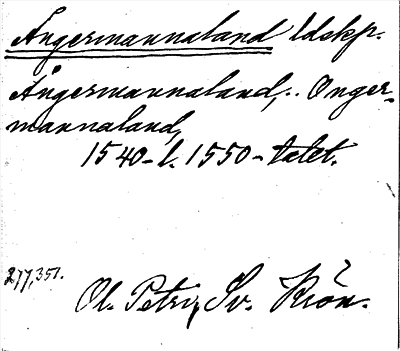 Ångermannaland ldskp.
Ångermannaland,.. Onger-
mannaland,
1540-l. 1550-talet.
277, 351.
Ol. Petri, Sv. Krön.